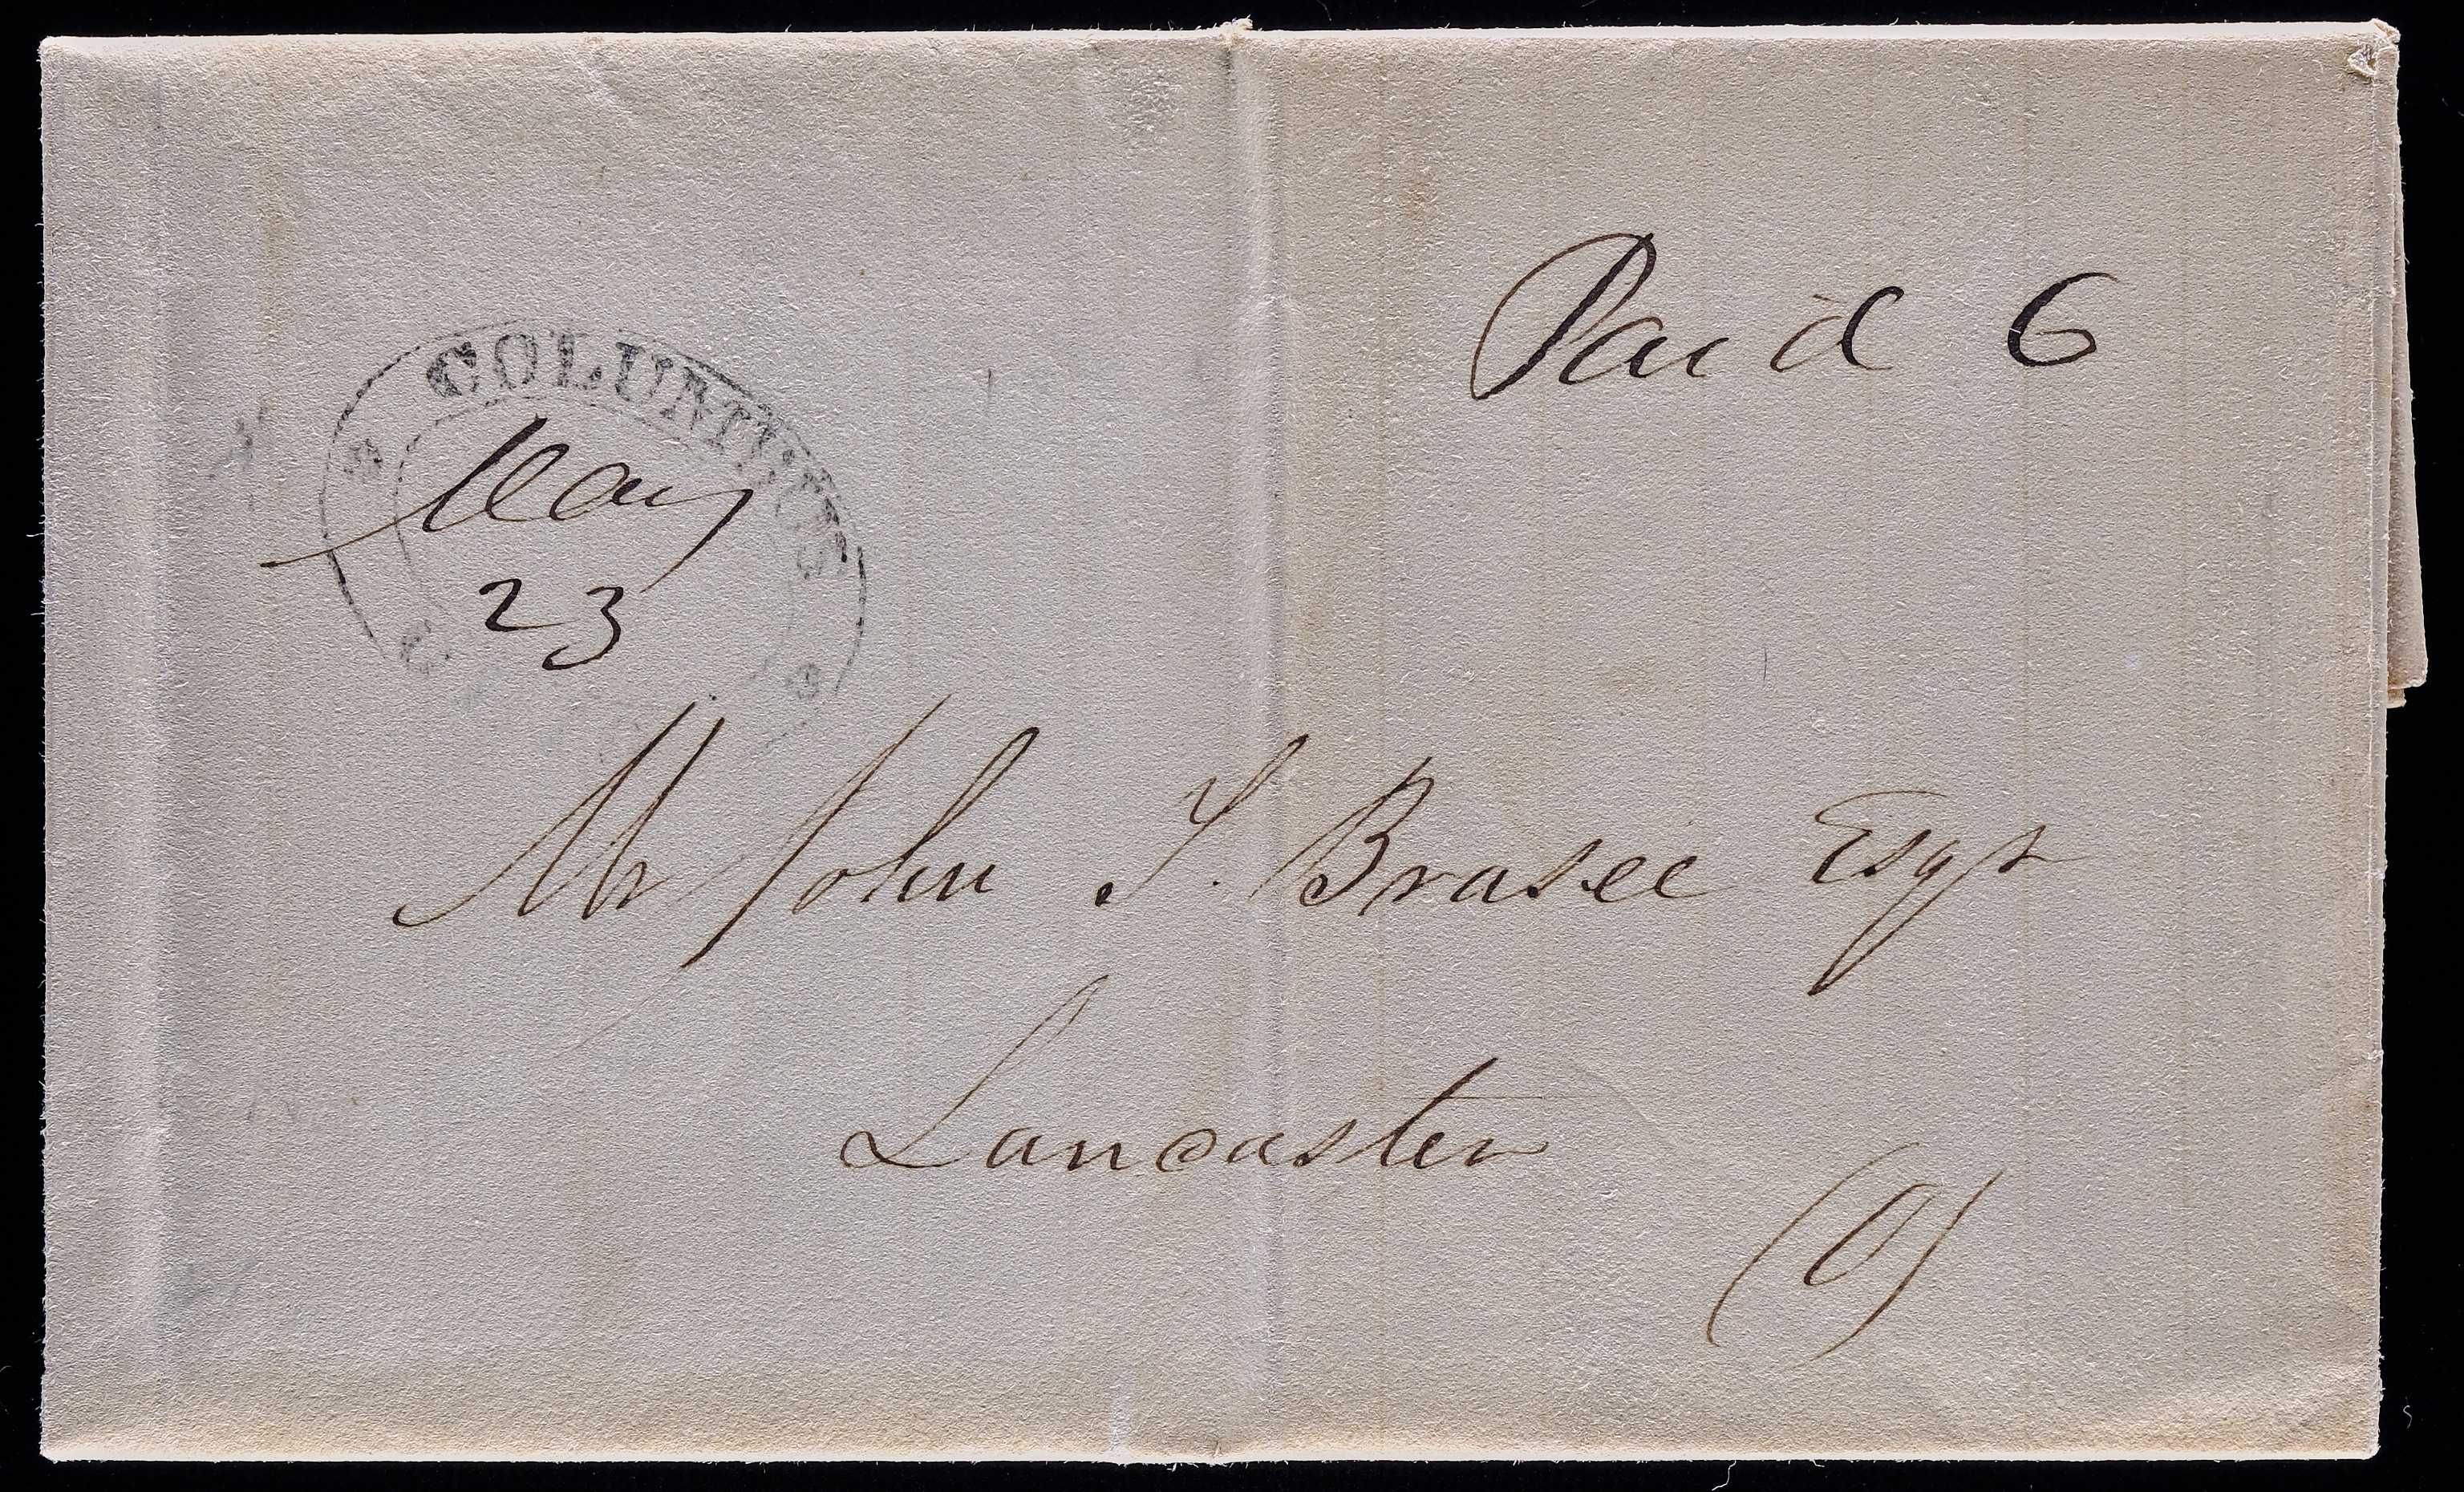 Paid 6
COLUMBUS
May
23
Mr John T. Brasee Esqr
Lancaster
(O)